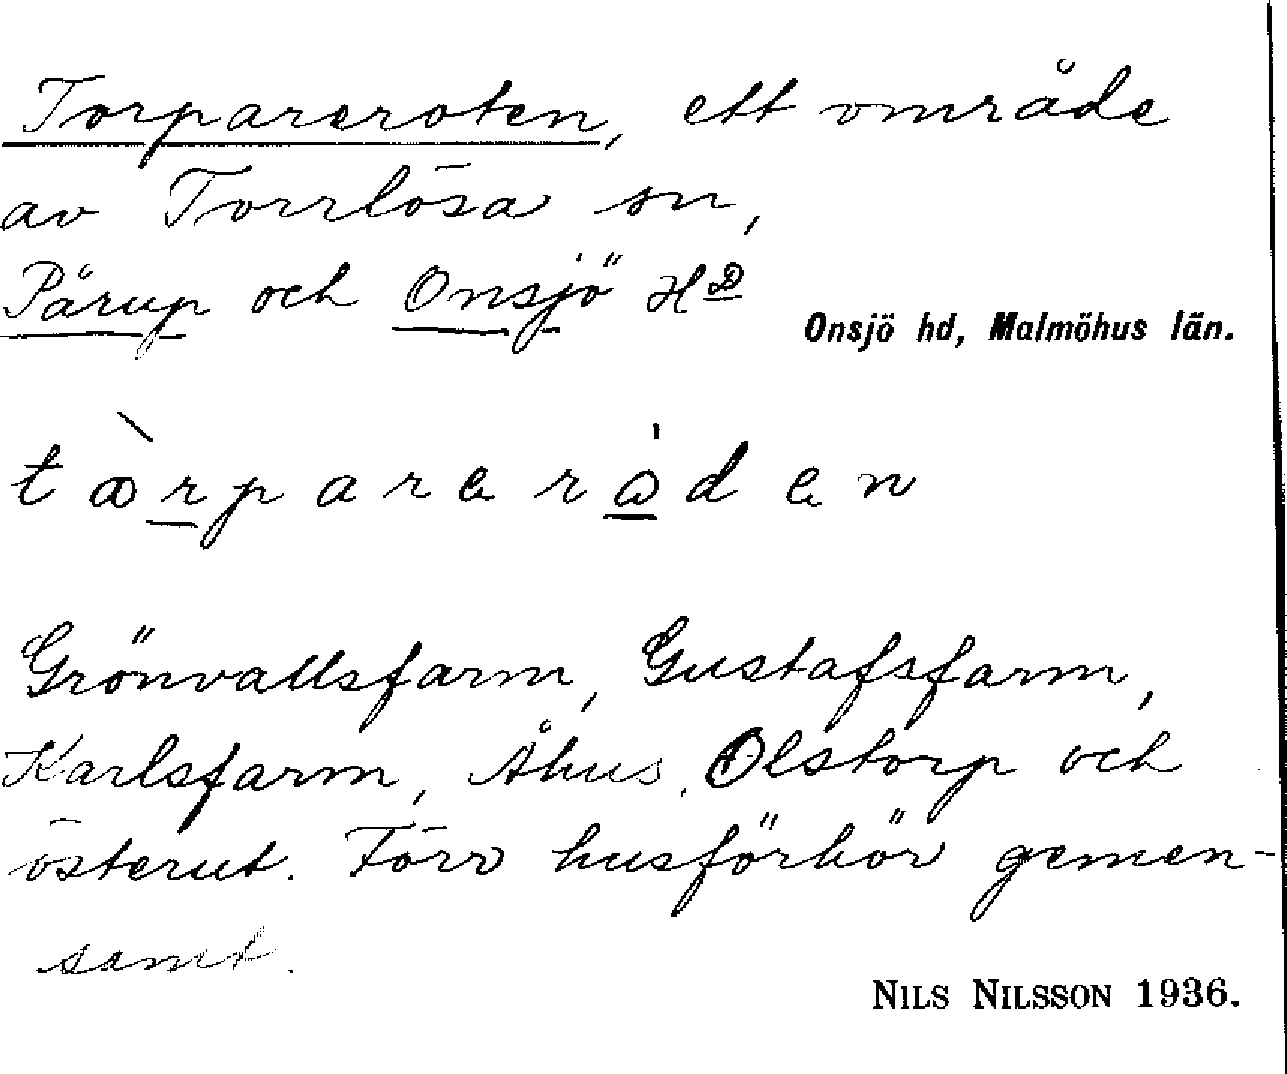 Torpareroten, ett område
av Torrlösa sn,
Pärup och Onsjö HD
Onsjö hd, Malmöhus län.
tɷ̀rparerɷ̀den
Grönvallsfarm, Gustafsfarm,
Karlsfarm, Åhus, Olstorp och
österut. Förr husförhör gemen-
samt.
NILS NILSSON 1936.